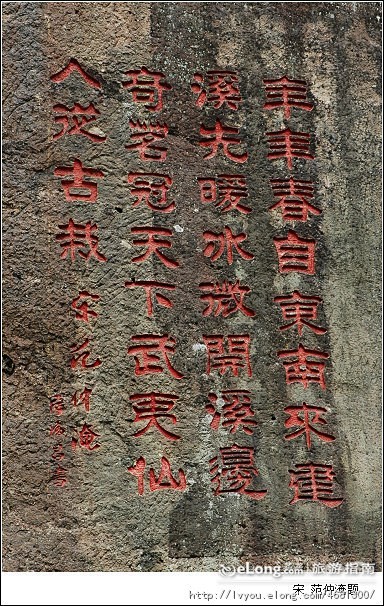 年年春自東南來建
溪先暖冰微開溪邊
奇茗冠天下武夷仙
人從古栽 宋范仲淹
eLong 旅游指南
宋 范仲淹题